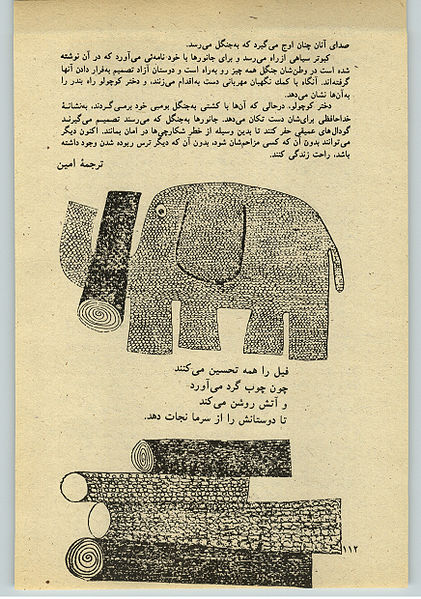 صدای آنان چنان اوج می‌گیرد که به‌جنگل می‌رسد.
کبوتر سیاهی ازراه می‌رسد و برای جانورها با خود نامه‌ئی می‌آورد که در آن نوشته
شده است در وطن‌شان جنگل همه چیز رو به‌راه است و دوستان آزاد تصمیم به‌فرار دادن آنها
گرفته‌اند. آنگاه با کمک نگهبان مهربانی دست به‌اقدام می‌زنند، و دختر کوچولو راه بندر را
به‌آن‌ها نشان می‌دهد.
دختر کوچولو، درحالی که آن‌ها با کشتی به‌جنگل بومیی خود برمی‌گردند، به‌نشانهٔ
خداحافظی برای‌شان دست تکان می‌دهد. جانورها به‌جنگل که می‌رسند تصمیم می‌گیرند
گودال‌های عمیقی حفر کنند تا بدین وسیله از خطر شکارچی‌ها در امان بمانند. اکنون دیگر
می‌توانند بدون آن که کسی مزاحم‌شان شود، بدون آن که دیگر ترس ربوده شدن وجود داشته
باشد، راحت زندگی کنند.
ترجمهٔ امین
فیل را همه تحسین می‌کنند
چون چوب گرد می‌آورد
و آتش روشن می‌کند
تا دوستانش را از سرما نجات دهد.
۱۱۲